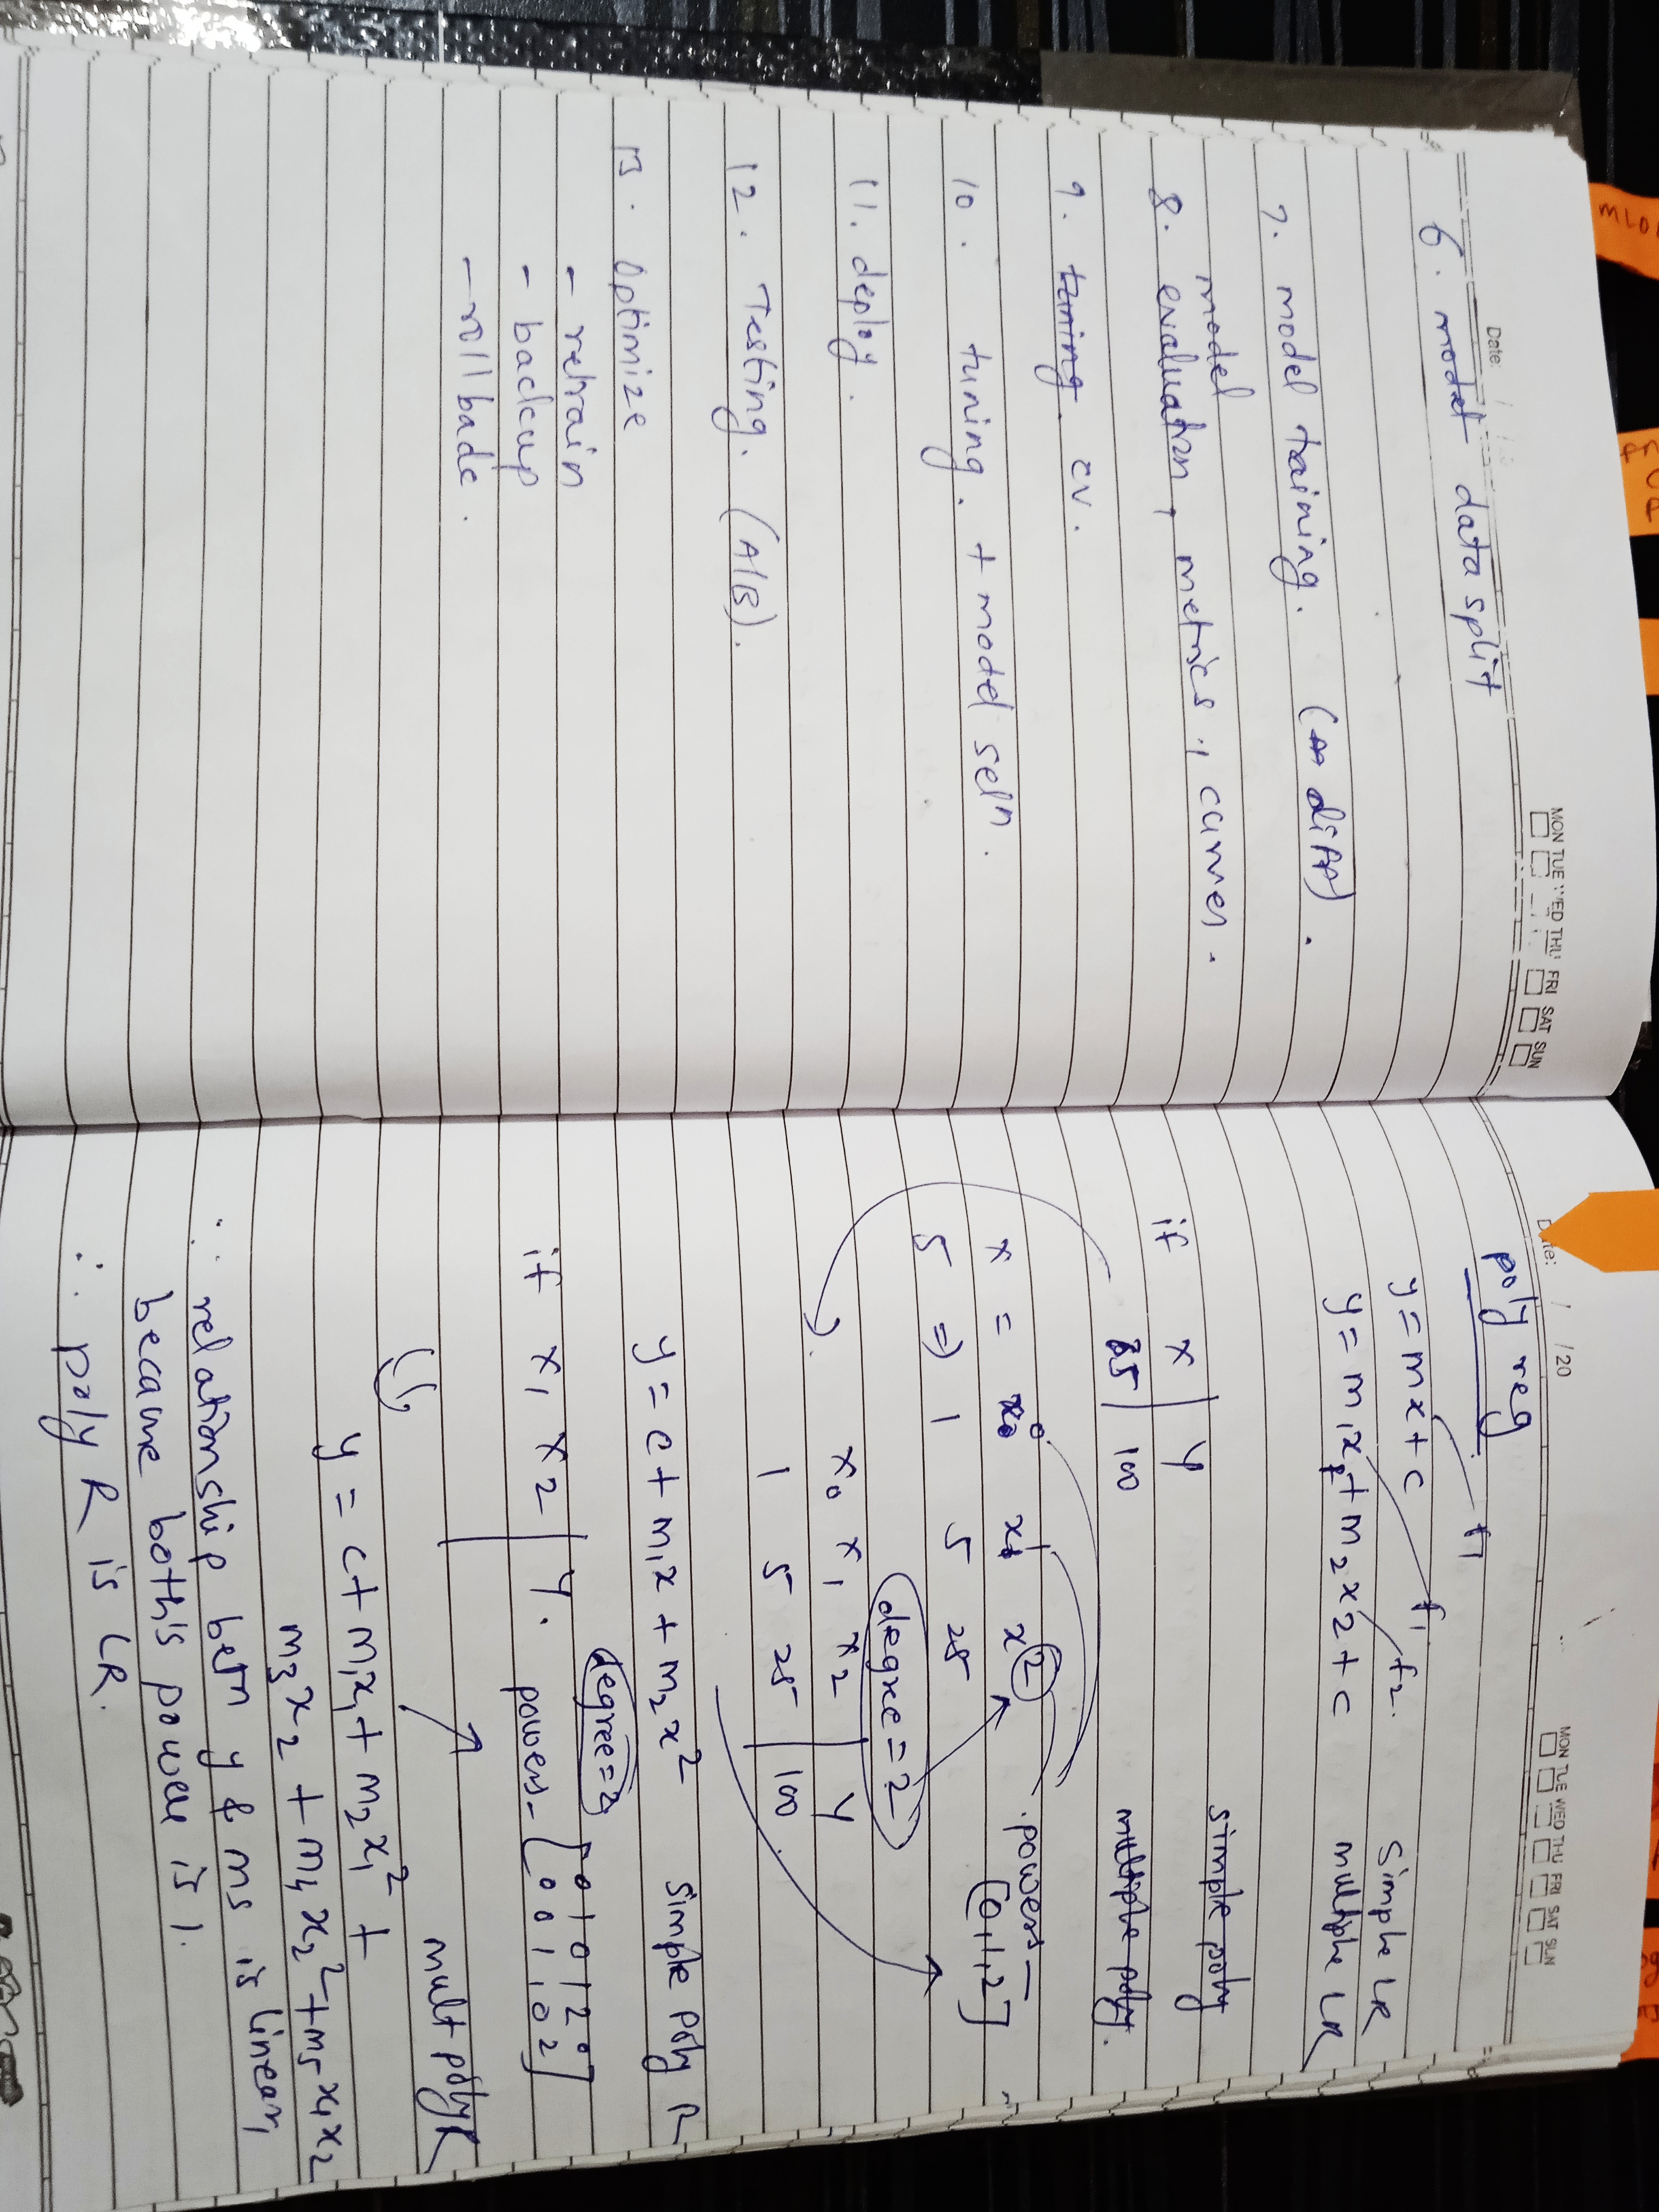 Date: / /
MON TUE WED THU FRI SAT SUN
6. model data split
7. model training. (AA diff).
model
8. evaluation, metrics, curves.
9. tuning. CV.
10. tuning. + model seln.
11. deploy.
12. Testing. (A/B).
13. Optimize
- retrain
- backup
- rollback.
Date: / /20
MON TUE WED THU FRI SAT SUN
poly reg
y = mx + c f1 simple LR
y = m1x1 + m2x2 + c f1 f2. multiple LR
if x | y simple poly
5 | 100 multiple poly.
x = x0 x1 x2 powers - [0,1,2]
5 ⇒ 1 5 25
degree = 2
x0 x1 x2 | y
1 5 25 | 100
y = c + m1x + m2x² simple poly R
degree=2
if x1 x2 | y. powers - [0 1 0 1 2 0
0 0 1 1 0 2]
mult poly R
y = c + m1x1 + m2x1² +
m3x2 + m4x2² + m5x1x2
∵ relationship betn y & ms is linear,
because both's power is 1.
∴ poly R is LR.